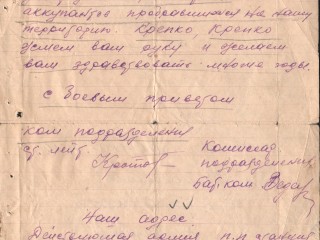 аккупантов пробравшихся на нашу
территорию. Крепко, Крепко
жмем вам руку и желаем
вам здравствовать многие годы
с Боевым приветом
ком подразделения
ст. лейт.
Комиссар
подразделения
Бат. ком
Наш адрес
Действующая армия п.п.